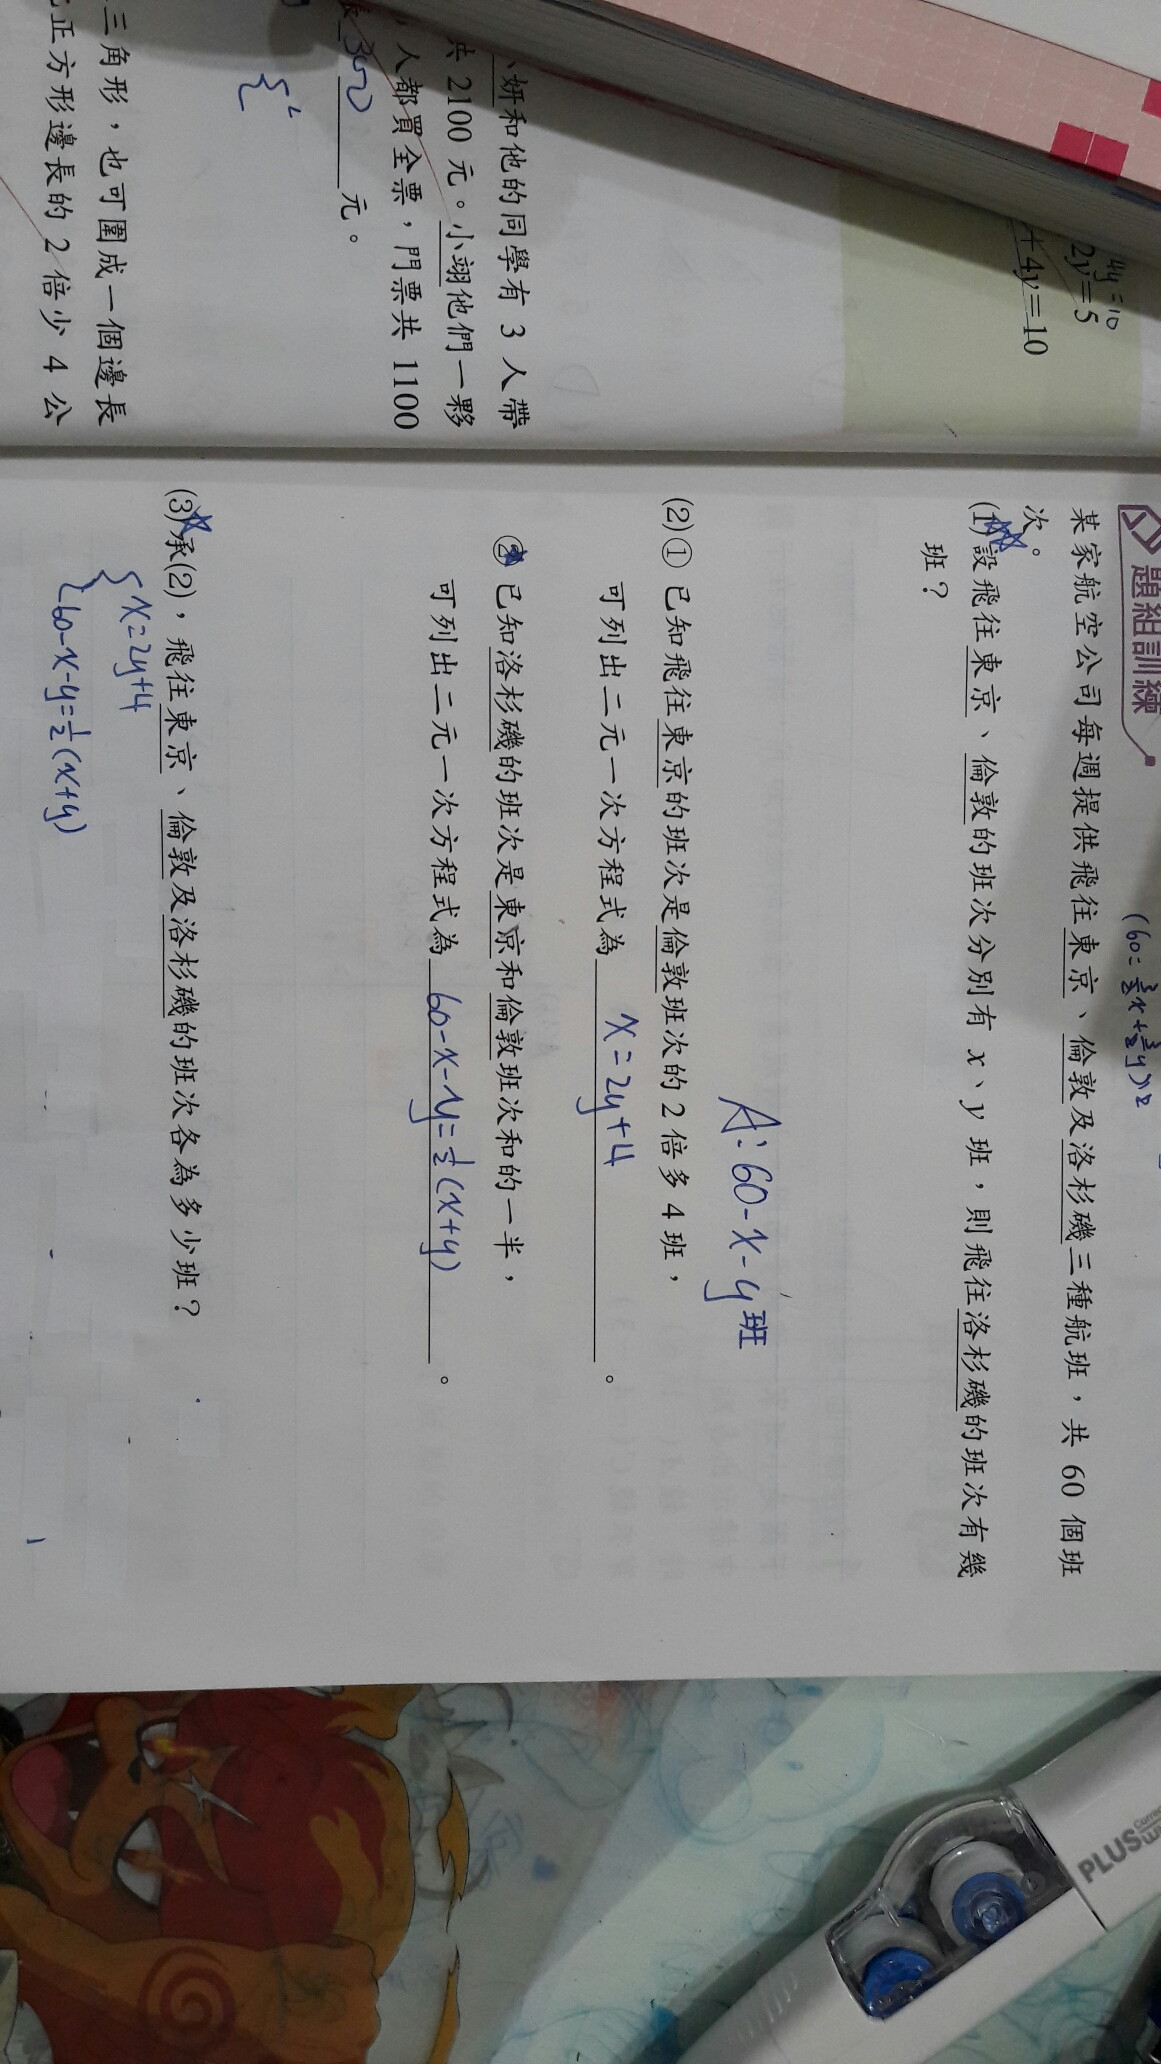 4y=10
2y=5
+4y=10
妍和他的同學有 3 人帶
共 2100 元。小翊他們一夥
人都買全票，門票共 1100
300 元。
三角形，也可圍成一個邊長
正方形邊長的 2 倍少 4 公
題組訓練
(60=3/2x+3/2y)×2
某家航空公司每週提供飛往東京、倫敦及洛杉磯三種航班，共 60 個班
次。
(1)設飛往東京、倫敦的班次分別有 x、y 班，則飛往洛杉磯的班次有幾
班？
A:60-x-y班
(2)① 已知飛往東京的班次是倫敦班次的 2 倍多 4 班，
可列出二元一次方程式為 x=2y+4 。
② 已知洛杉磯的班次是東京和倫敦班次和的一半，
可列出二元一次方程式為 60-x-y=1/2(x+y) 。
(3)承(2)，飛往東京、倫敦及洛杉磯的班次各為多少班？
{x=2y+4
{60-x-y=1/2(x+y)
PLUS